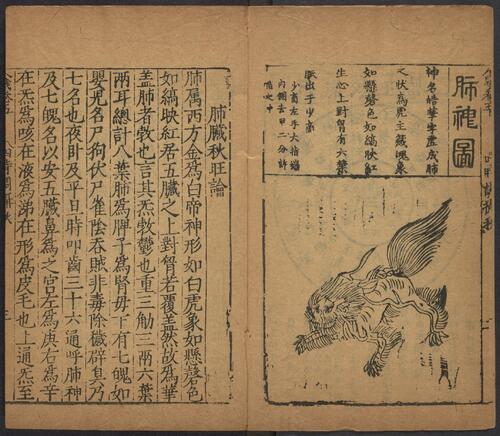 肺神圖
神名皓華字虛成肺
之狀為虎主藏魄象
如懸磬色如縞映紅
生心上對胷有六葉
脉出于少商
少商左手大指端
內側去甲二分許
陷之中
肺臟秋旺論
肺屬西方金為白帝神形如白虎象如懸磬色
如縞映紅居五臟之上對胷若覆盖然故為華
盖肺者㪍也言其炁㪍鬱也重三觔三兩六葉
兩耳總計八葉肺為脾子為腎母下有七魄如
嬰兒名尸狗伏尸雀陰吞賊非毒除穢辟臭乃
七名也夜卧及平旦時叩齒三十六通呼肺神
及七魄名以安五臟鼻為之宮左為庚右為辛
在炁為咳在液為涕在形為皮毛也上通炁至